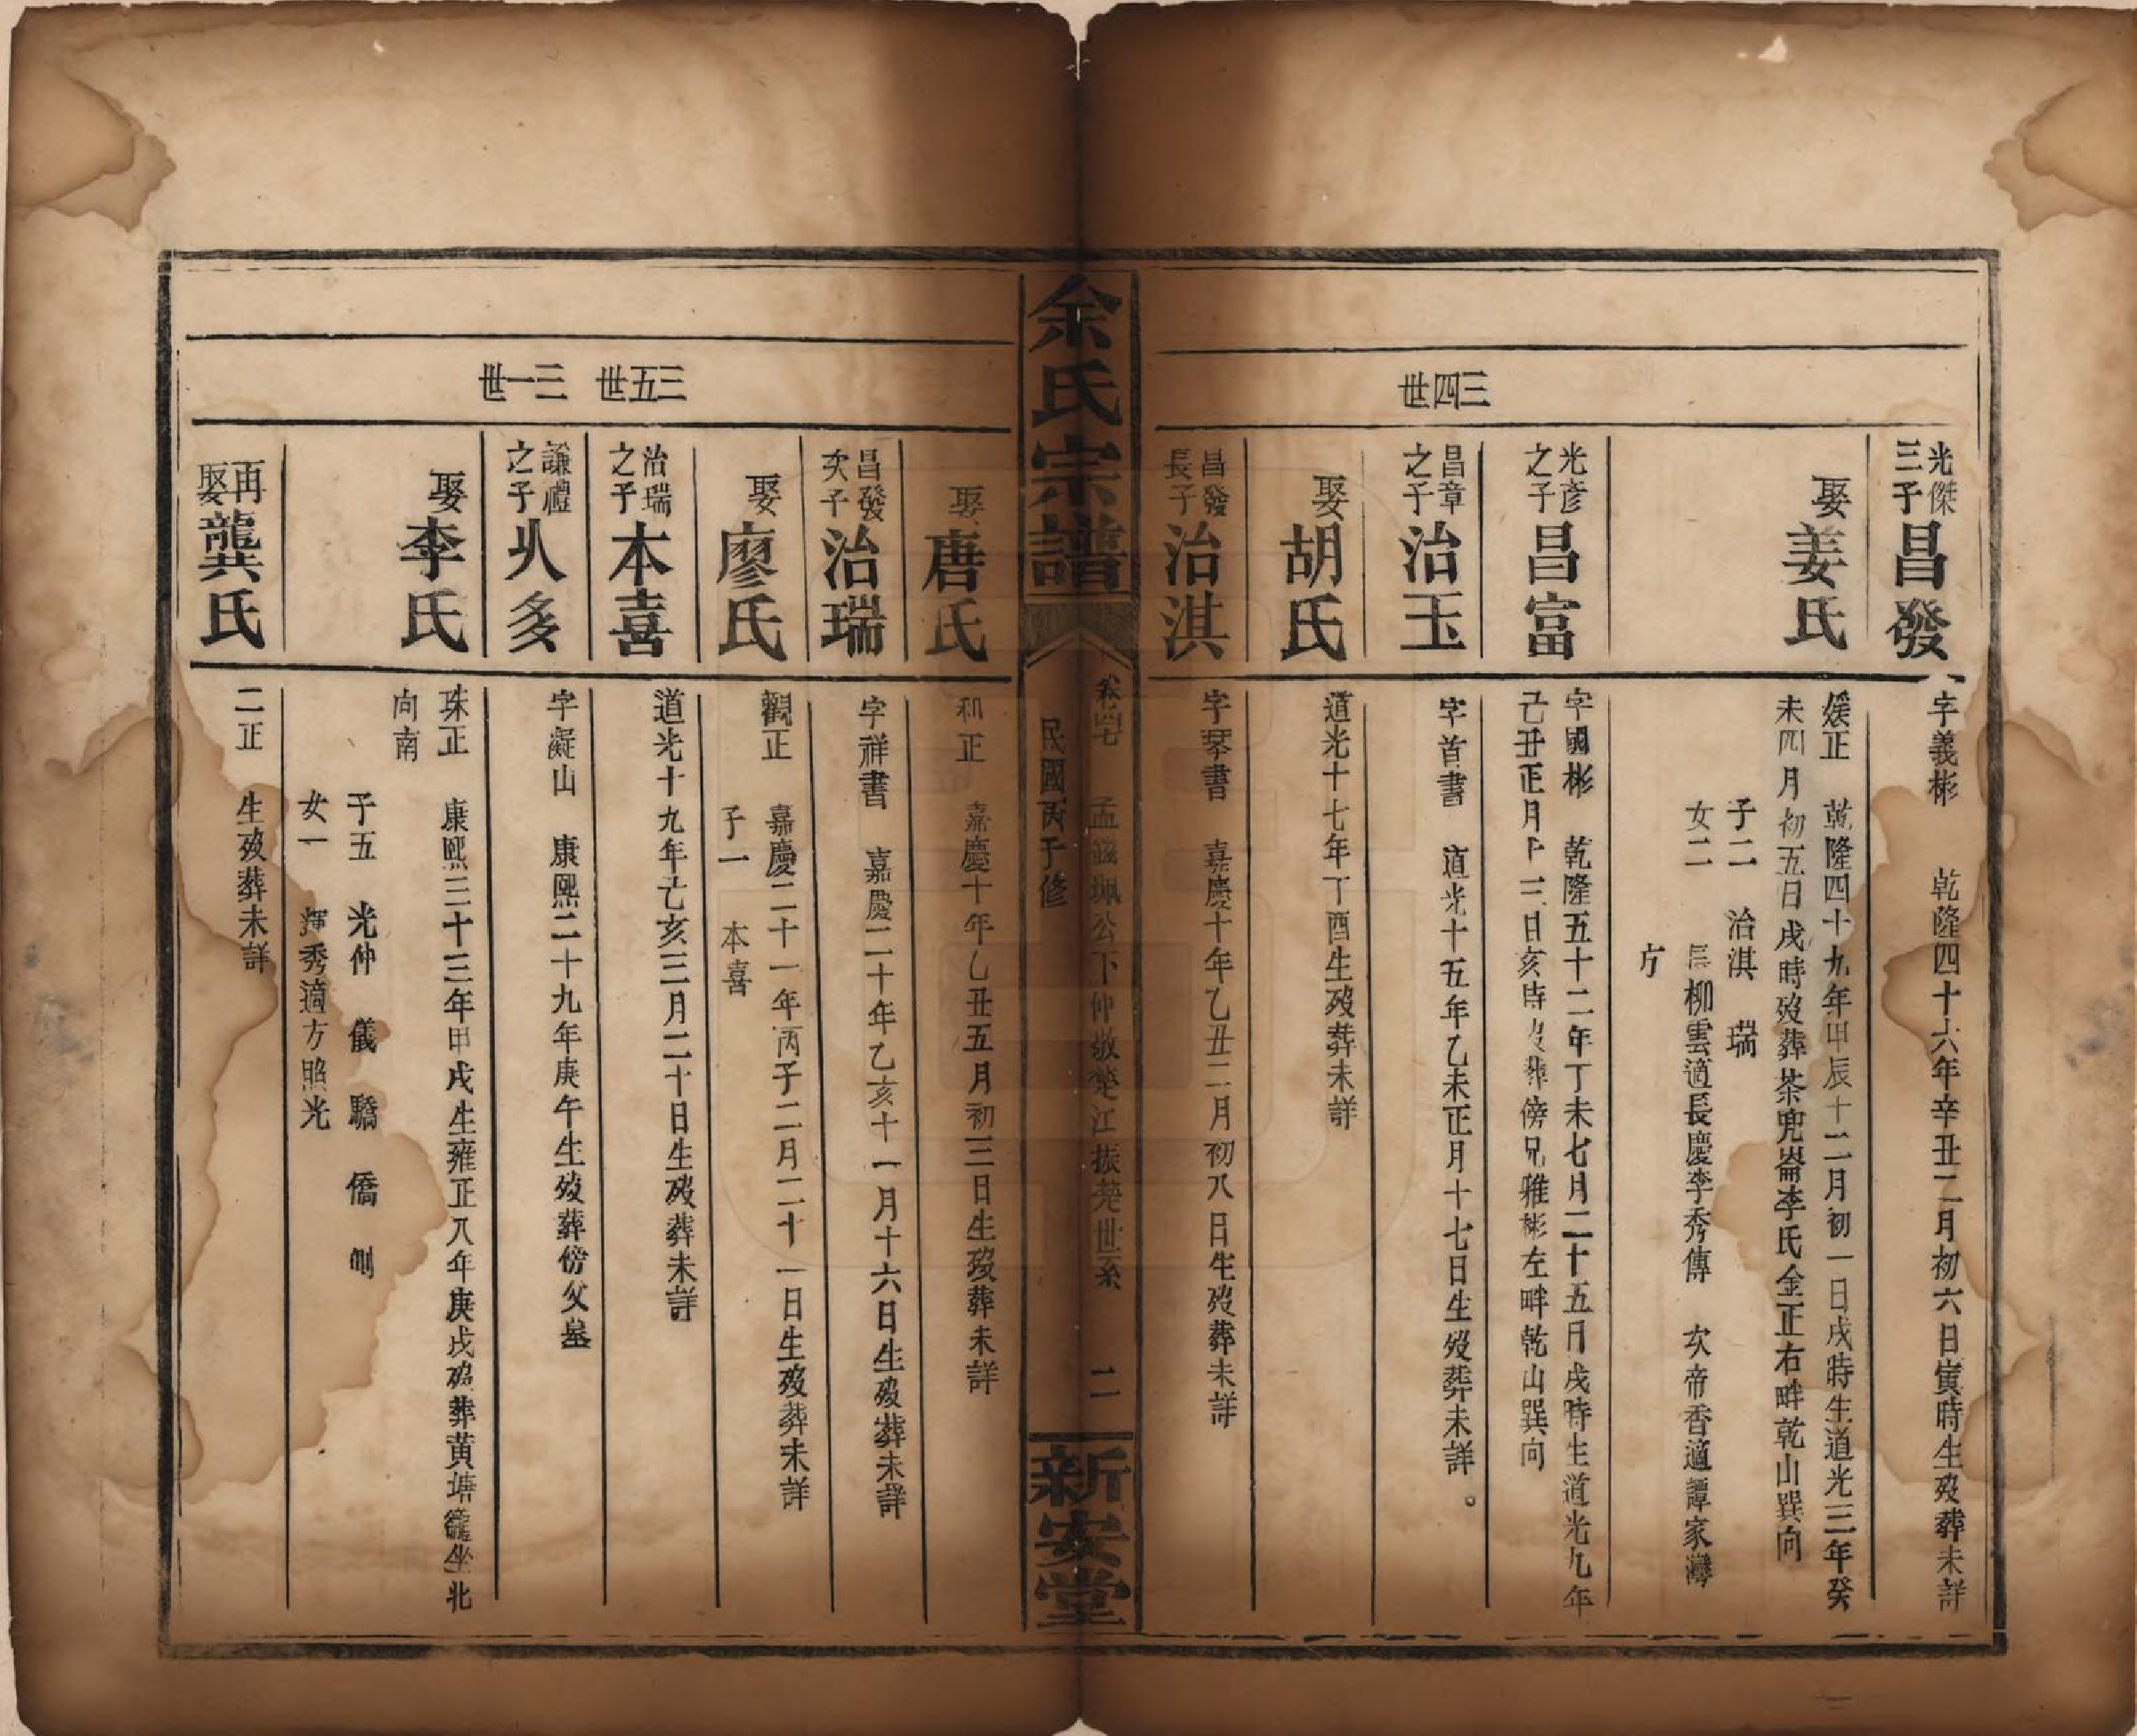 三四世
光傑三子
昌發
字義彬 乾隆四十六年辛丑二月初六日寅時生歿葬未詳
娶姜氏
媄正 乾隆四十九年甲辰十二月初一日戌時生道光三年癸
未四月初五日戌時歿葬茶兜崙李氏金正右畔乾山巽向
子二 治淇 瑞
女二 長柳雲適長慶李秀傳 次帝香適譚家灣
方
光彥之子
昌富
字國彬 乾隆五十二年丁未七月二十五月戌時生道光九年
己丑正月十二日亥時歿葬傍兄雅彬左畔乾山巽向
昌章之子
治玉
字首書 道光十五年乙未正月十七日生歿葬未詳。
娶胡氏
道光十七年丁酉生歿葬未詳
昌發長子
治淇
字琴書 嘉慶十年乙丑二月初八日生歿葬未詳
余氏宗譜
孟 珮公下仲敬楚江振堯世系 二
民國丙子修
新安堂
娶唐氏
和正 嘉慶十年乙丑五月初三日生歿葬未詳
昌發次子
治瑞
字祥書 嘉慶二十年乙亥十一月十六日生歿葬未詳
娶廖氏
觀正 嘉慶二十一年丙子二月二十一日生歿葬未詳
子一 本喜
三五世
治瑞之子
本喜
道光十九年己亥三月二十日生歿葬未詳
三一世
謙禮之子
從多
字凝山 康熙二十九年庚午生歿葬傍父墓
娶李氏
珠正 康熙三十三年甲戌生雍正八年庚戌歿葬黃塘籠坐北
向南
子五 光仲 儀 驕 僑
女一 輝秀適方照光
再娶龔氏
二正 生歿葬未詳